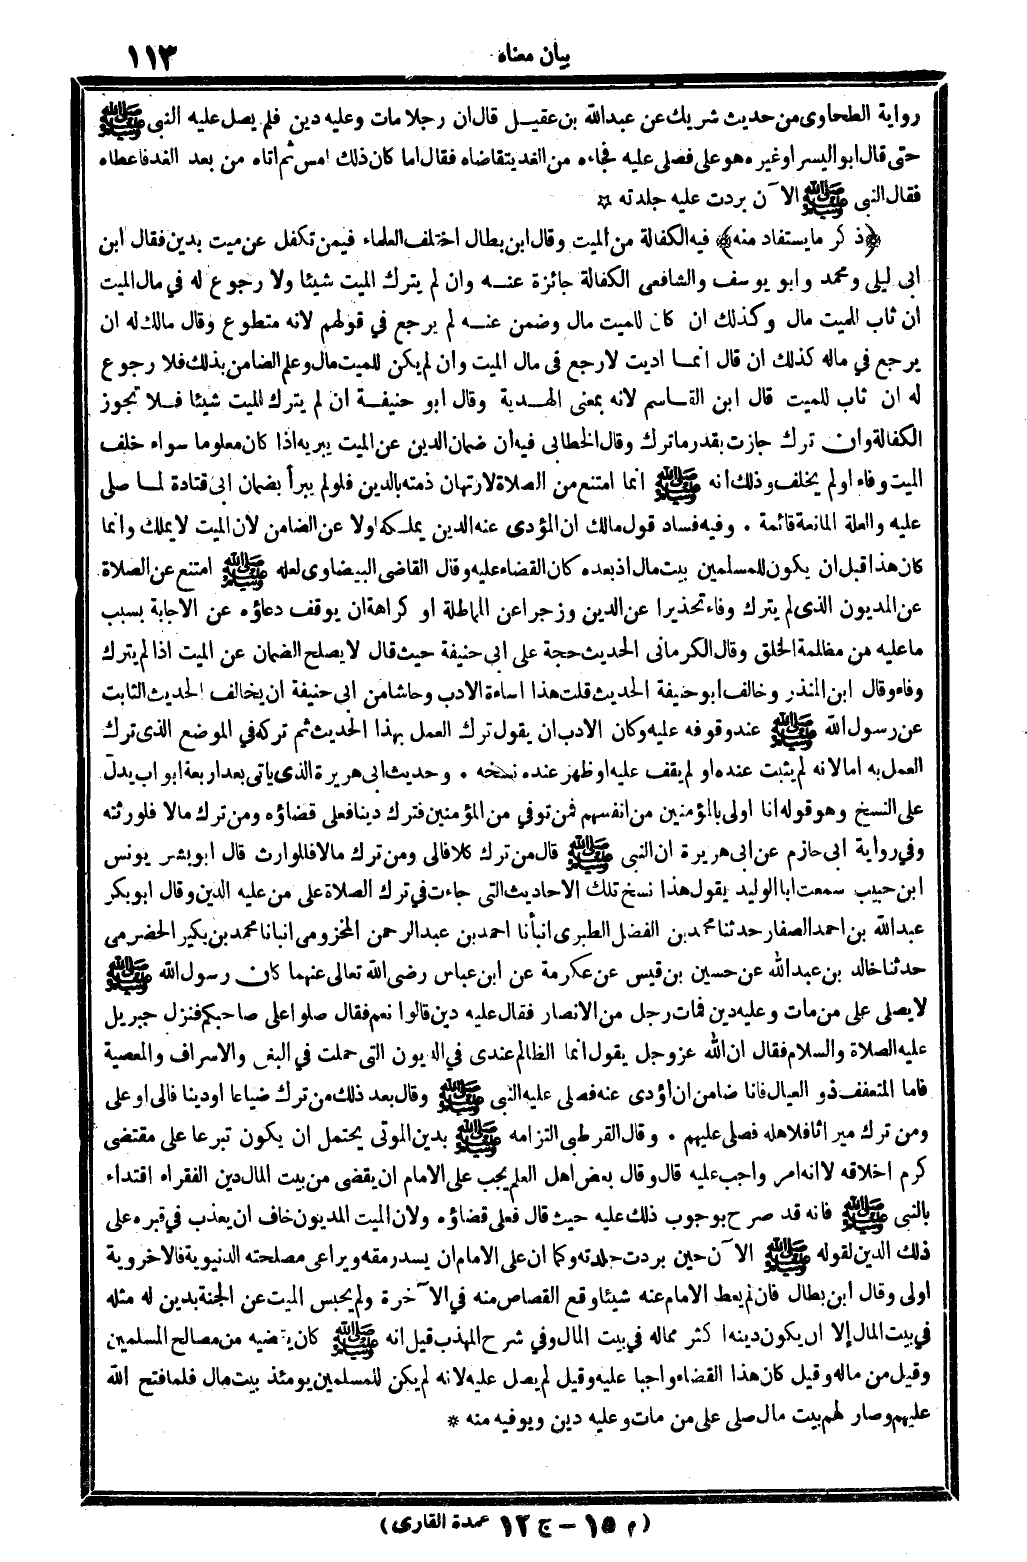 بيان معناه ١١٣
رواية الطحاوى من حديث شريك عن عبدالله بن عقيل قال ان رجلا مات وعليه دين فلم يصل عليه النبى ﷺ
حتى قال ابو اليسر او غيره هو على فصلى عليه فجاءه من الغد يتقاضاه فقال اما كان ذلك امس ثم اتاه من بعد الغد فاعطاه
فقال النبى ﷺ الآن بردت عليه جلدته ☆
﴿ذكر ما يستفاد منه﴾ فيه الكفالة من الميت وقال ابن بطال اختلف العلماء فيمن تكفل عن ميت بدين فقال ابن
ابى ليلى ومحمد وابو يوسف والشافعى الكفالة جائزة عنه وان لم يترك الميت شيئا ولا رجوع له في مال الميت
ان ثاب للميت مال وكذلك ان كان للميت مال وضمن عنه لم يرجع في قولهم لانه متطوع وقال مالك له ان
يرجع في ماله كذلك ان قال انما اديت لارجع فى مال الميت وان لم يكن للميت مال وعلم الضامن بذلك فلا رجوع
له ان ثاب للميت قال ابن القاسم لانه بمعنى الهدية وقال ابو حنيفة ان لم يترك الميت شيئا فلا تجوز
الكفالة وان ترك جازت بقدر ما ترك وقال الخطابى فيه ان ضمان الدين عن الميت يبريه اذا كان معلوما سواء خلف
الميت وفاء او لم يخلف وذلك انه ﷺ انما امتنع من الصلاة لارتهان ذمته بالدين فلو لم يبرأ بضمان ابى قتادة لما صلى
عليه والعلة المانعة قائمة . وفيه فساد قول مالك ان المؤدى عنه الدين يملكه اولا عن الضامن لان الميت لا يملك وانما
كان هذا قبل ان يكون للمسلمين بيت مال اذ بعده كان القضاء عليه وقال القاضى البيضاوى لعله ﷺ امتنع عن الصلاة
عن المديون الذى لم يترك وفاء تحذيرا عن الدين وزجرا عن المماطلة او كراهة ان يوقف دعاؤه عن الاجابة بسبب
ما عليه من مظلمة الخلق وقال الكرمانى الحديث حجة على ابى حنيفة حيث قال لا يصلح الضمان عن الميت اذا لم يترك
وفاء وقال ابن المنذر وخالف ابو حنيفة الحديث قلت هذا اساءة الادب وحاشا من ابى حنيفة ان يخالف الحديث الثابت
عن رسول الله ﷺ عند وقوفه عليه وكان الادب ان يقول ترك العمل بهذا الحديث ثم تركه في الموضع الذى ترك
العمل به اما لانه لم يثبت عنده او لم يقف عليه او ظهر عنده نسخه . وحديث ابى هريرة الذى ياتى بعد اربعة ابواب يدل
على النسخ وهو قوله انا اولى بالمؤمنين من انفسهم فمن توفي من المؤمنين فترك دينا فعلى قضاؤه ومن ترك مالا فلورثته
وفي رواية ابى حازم عن ابى هريرة ان النبى ﷺ قال من ترك كلا فالى ومن ترك مالا فللوارث قال ابو بشر يونس
ابن حبيب سمعت ابا الوليد يقول هذا نسخ تلك الاحاديث التى جاءت في ترك الصلاة على من عليه الدين وقال ابو بكر
عبدالله بن احمد الصفار حدثنا محمد بن الفضل الطبرى انبأنا احمد بن عبد الرحمن المخزومى انبانا محمد بن بكير الحضرمى
حدثنا خالد بن عبدالله عن حسين بن قيس عن عكرمة عن ابن عباس رضى الله تعالى عنهما كان رسول الله ﷺ
لا يصلى على من مات وعليه دين فمات رجل من الانصار فقال عليه دين قالوا نعم فقال صلوا على صاحبكم فنزل جبريل
عليه الصلاة والسلام فقال ان الله عز وجل يقول انما الظالم عندى في الديون التى حملت في البغى والاسراف والمعصية
فاما المتعفف ذو العيال فانا ضامن ان اؤدى عنه فصلى عليه النبى ﷺ وقال بعد ذلك من ترك ضياعا او دينا فالى او على
ومن ترك ميراثا فلاهله فصلى عليهم . وقال القرطبى التزامه ﷺ بدين الموتى يحتمل ان يكون تبرعا على مقتضى
كرم اخلاقه لا انه امر واجب عليه قال وقال بعض اهل العلم يجب على الامام ان يقضى من بيت المال دين الفقراء اقتداء
بالنبى ﷺ فانه قد صرح بوجوب ذلك عليه حيث قال فعلى قضاؤه ولان الميت المديون خاف ان يعذب في قبره على
ذلك الدين لقوله ﷺ الآن حين بردت جلدته وكما ان على الامام ان يسد رمقه ويراعى مصلحته الدنيوية فالاخروية
اولى وقال ابن بطال فان لم يعط الامام عنه شيئا وقع القصاص منه في الآخرة ولم يحبس الميت عن الجنة بدين له مثله
في بيت المال إلا ان يكون دينه اكثر مماله في بيت المال وفي شرح المهذب قيل انه ﷺ كان يقضيه من مصالح المسلمين
وقيل من ماله وقيل كان هذا القضاء واجبا عليه وقيل لم يصل عليه لانه لم يكن للمسلمين يومئذ بيت مال فلما فتح الله
عليهم وصار لهم بيت مال صلى على من مات وعليه دين ويوفيه منه *
(م ١٥ - ج ١٢ عمدة القارى)